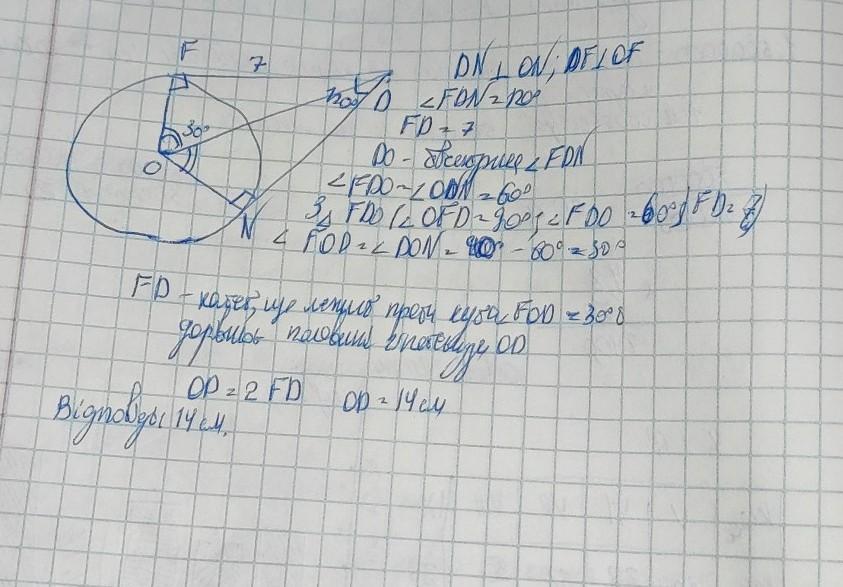 F
7
120°
D
30°
O
N
DN ⊥ ON; DF ⊥ OF
∠FDN = 120°
FD = 7
DO - бісектриса ∠FDN
∠FDO = ∠ODN = 60°
З △ FDO (∠OFD = 90°; ∠FDO = 60°; FD = 7)
∠FOD = ∠DON = 90° - 60° = 30°
FD - катет, що лежить проти кута ∠FOD = 30° і
дорівнює половині гіпотенузи OD
OD = 2 FD OD = 14 см
Відповідь: 14 см.